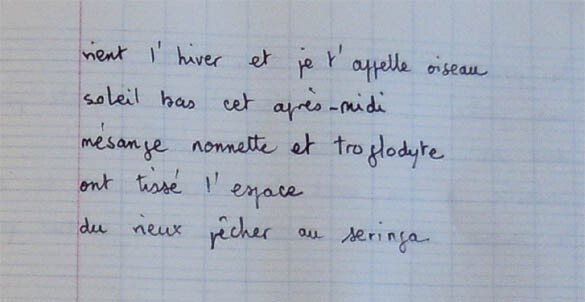 vient l'hiver et je t'appelle oiseau
soleil bas cet après-midi
mésange nonnette et troglodyte
ont tissé l'espace
du vieux pêcher au seringa